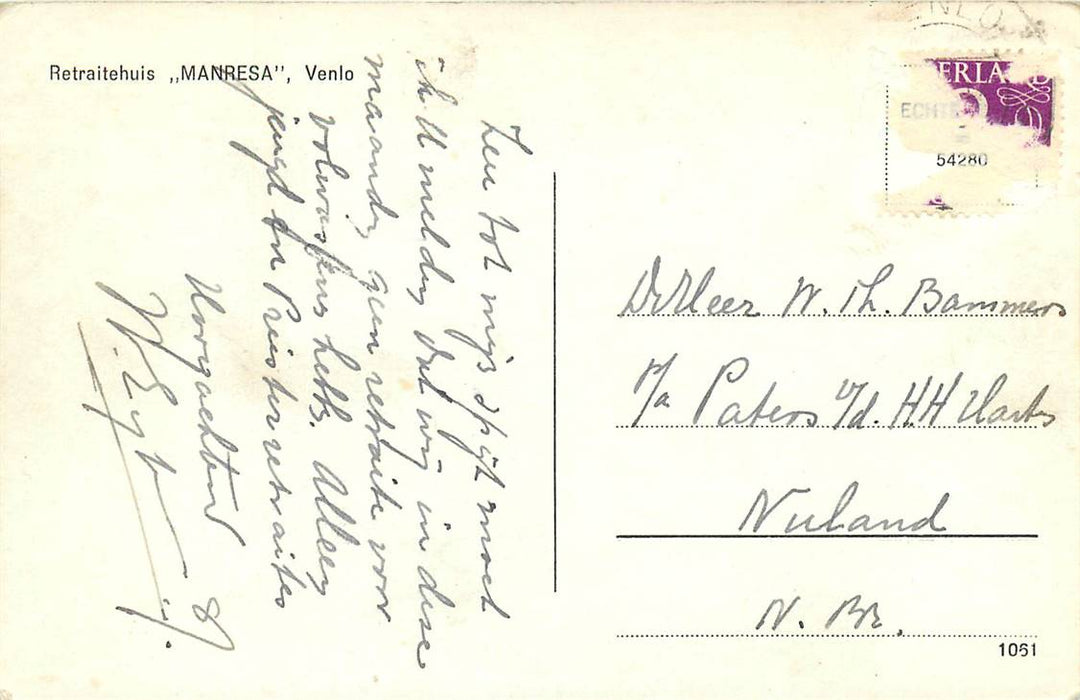 Retraitehuis „MANRESA", Venlo
Zeer tot mijn spijt moet
ik U melden dat wij in deze
maanden geen retraite voor
volwassenens hebben. Alleen
jeugd en Priesterretraites
Hoogachtend
NLO
ERLA
ECHTE
54280
De Heer W. Th. Bammers
p/a Paters v/d. H.H Harten
Nuland
N. Br.
1061